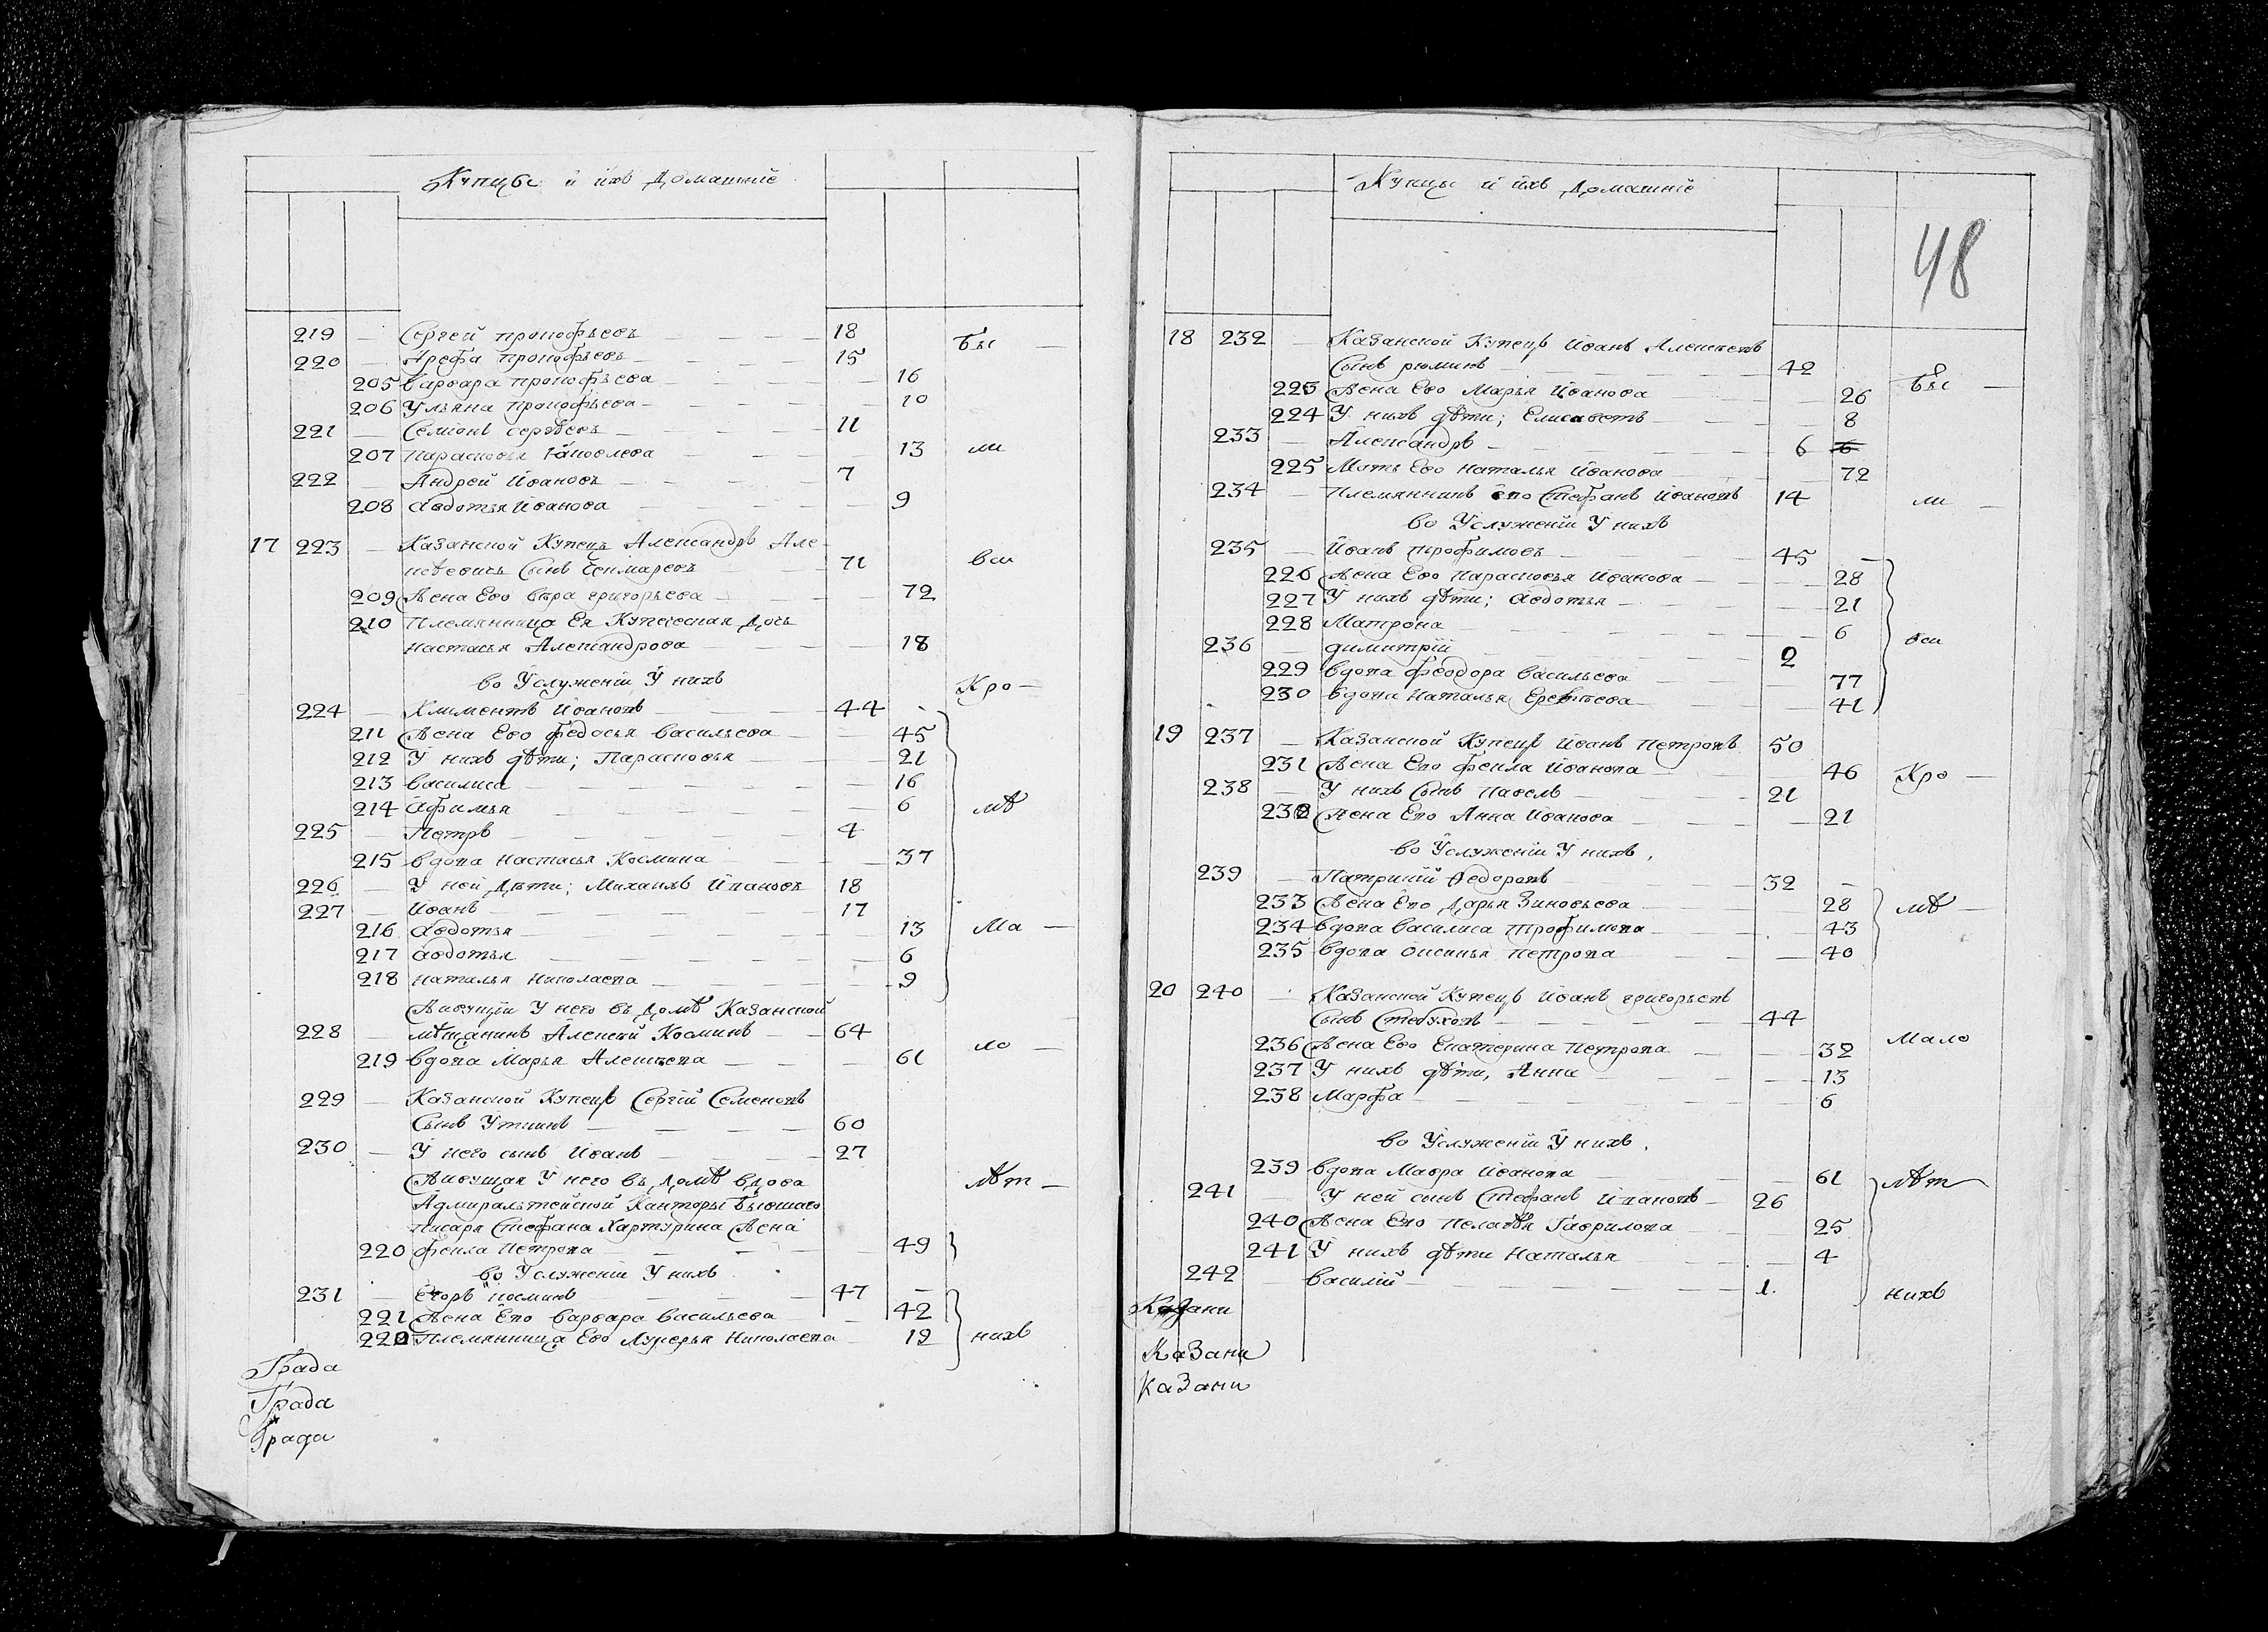 Купцы и ихъ Домашніе
219 — Сергей прокофьевъ 18
Бы —
220 — Арефа прокофьевъ 15
205 варвара прокофьева 16
206 Ульяна прокофьева 10
221 — Семіонъ сергѣевъ 11
207 парасковья 13 ли
222 — Андрей Ивановъ 7
208 авдотья Иванова 9
17 223 — Казанской Купецъ Александръ Але-
ксѣевичъ Сынъ 71 вси
209 Жена Ево вѣра григорьева 72
210 Племянница Ея Купеческая дочь
настасья Александрова 18
во Услуженіи У нихъ
Кро —
224 — Климентъ Ивановъ 44
211 Жена Ево федосья васильева 45
212 У нихъ дѣти; Парасковья 21
213 василиса 16
214 афимья 6 мѣ
225 — Петръ 4
215 вдова настасья Космина 37
226 — У ней дѣти; Михаилъ Ивановъ 18
227 — Иванъ 17
216 авдотья 13 Ма —
217 авдотья 6
218 наталья николаева 9
Живущій У него въ домѣ Казанской
228 — мѣщанинъ Алексѣй Косминъ 64
ло —
219 вдова Марья Алексѣева 61
229 — Казанской Купецъ Сергій Семеновъ
Сынъ Уткинъ 60
230 — У него сынъ Иванъ 27
Живущая У него въ домѣ вдова лѣт —
Адмиралтейской Канторы Бывшаго
писаря Стефана Хартурина Жена
220 фекла петрова 49
во Услуженіи У нихъ
231 — Егоръ косминъ 47
221 Жена Ево варвара васильева 42
222 Племянница Ево Лукерья Николаева 12 нихъ
Града
Града
Града
Купцы и ихъ домашніе
48
18 232 — Казанской Купецъ Иванъ Алексѣевъ
Сынъ рюминъ 42
Бы —
223 Жена Ево Марья Иванова 26
224 У нихъ дѣти; Елисаветъ 8
233 — Александръ 6 6
225 Мать Ево наталья Иванова 72
234 — Племянникъ Ево Стефанъ Ивановъ 14 ли —
во Услуженіи У нихъ
235 — Иванъ трофимовъ 45 —
226 Жена Ево парасковья Иванова 28
227 У нихъ дѣти; авдотья 21
228 Матрона 6
вси
236 — димитрій 2
229 вдова феодора васильева 77
230 вдова наталья 41
19 237 — Казанской Купецъ Иванъ петровъ 50
231 Жена Ево фекла Иванова 46 Кро —
238 — У нихъ сынъ павелъ 21
232 Жена Ево Анна Иванова 21
во Услуженіи У нихъ.
239 — Патрикій федоровъ 32 —
233 Жена Ево дарья Зиновьева 28 мѣ —
234 вдова василиса трофимова 43
235 вдова оксинья петрова 40
20 240 — Казанской Купецъ Иванъ григорьевъ
Сынъ Стебуховъ 44
Мало
236 Жена Ево Екатерина петрова 32
237 У нихъ дѣти, Анна 13
238 Марфа 6
во Услуженіи У нихъ.
239 вдова Мавра Иванова 61 лѣт
241 — У ней сынъ Стефанъ Ивановъ 26
240 Жена Ево пелагѣя Гаврилова 25
241 У нихъ дѣти наталья 4
242 — василій 1.
нихъ
Казани
Казани
Казани